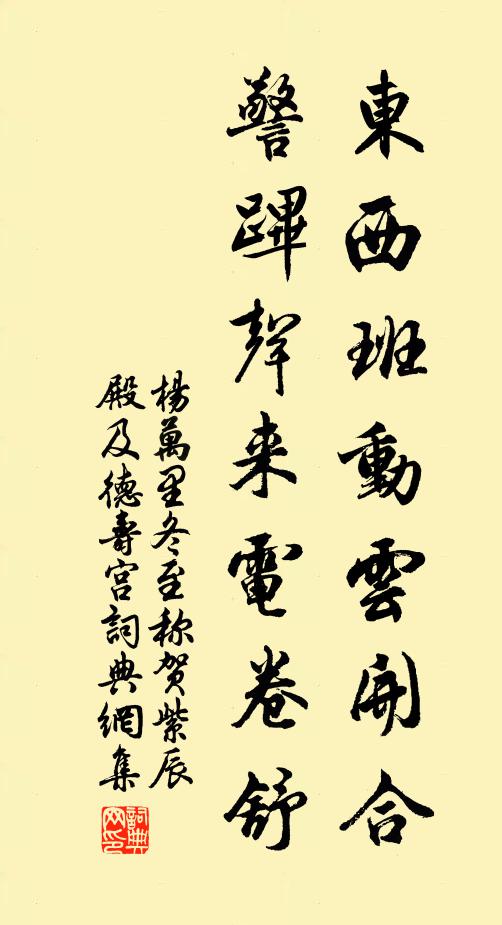 東西班動雲開合
警蹕聲来電卷舒
楊萬里冬至称賀紫辰
殿及德壽宮詞典網集
詞典網印